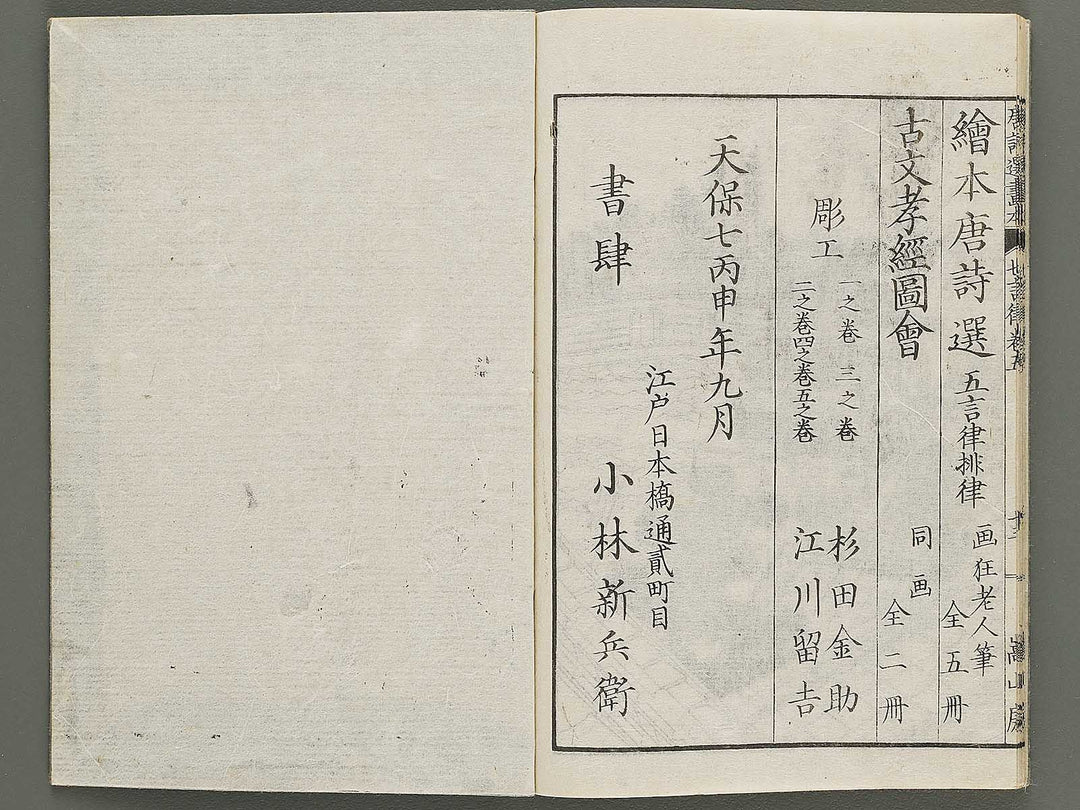 唐詩選畫本 七言律 卷五 十三 嵩山房
繪本唐詩選 五言律排律 画狂老人筆 全五冊
古文孝經圖會 同画 全二冊
彫工
一之巻 三之巻 杉田金助
二之巻四之巻五之巻 江川留吉
天保七丙申年九月
江戸日本橋通貳町目
書肆 小林新兵衛